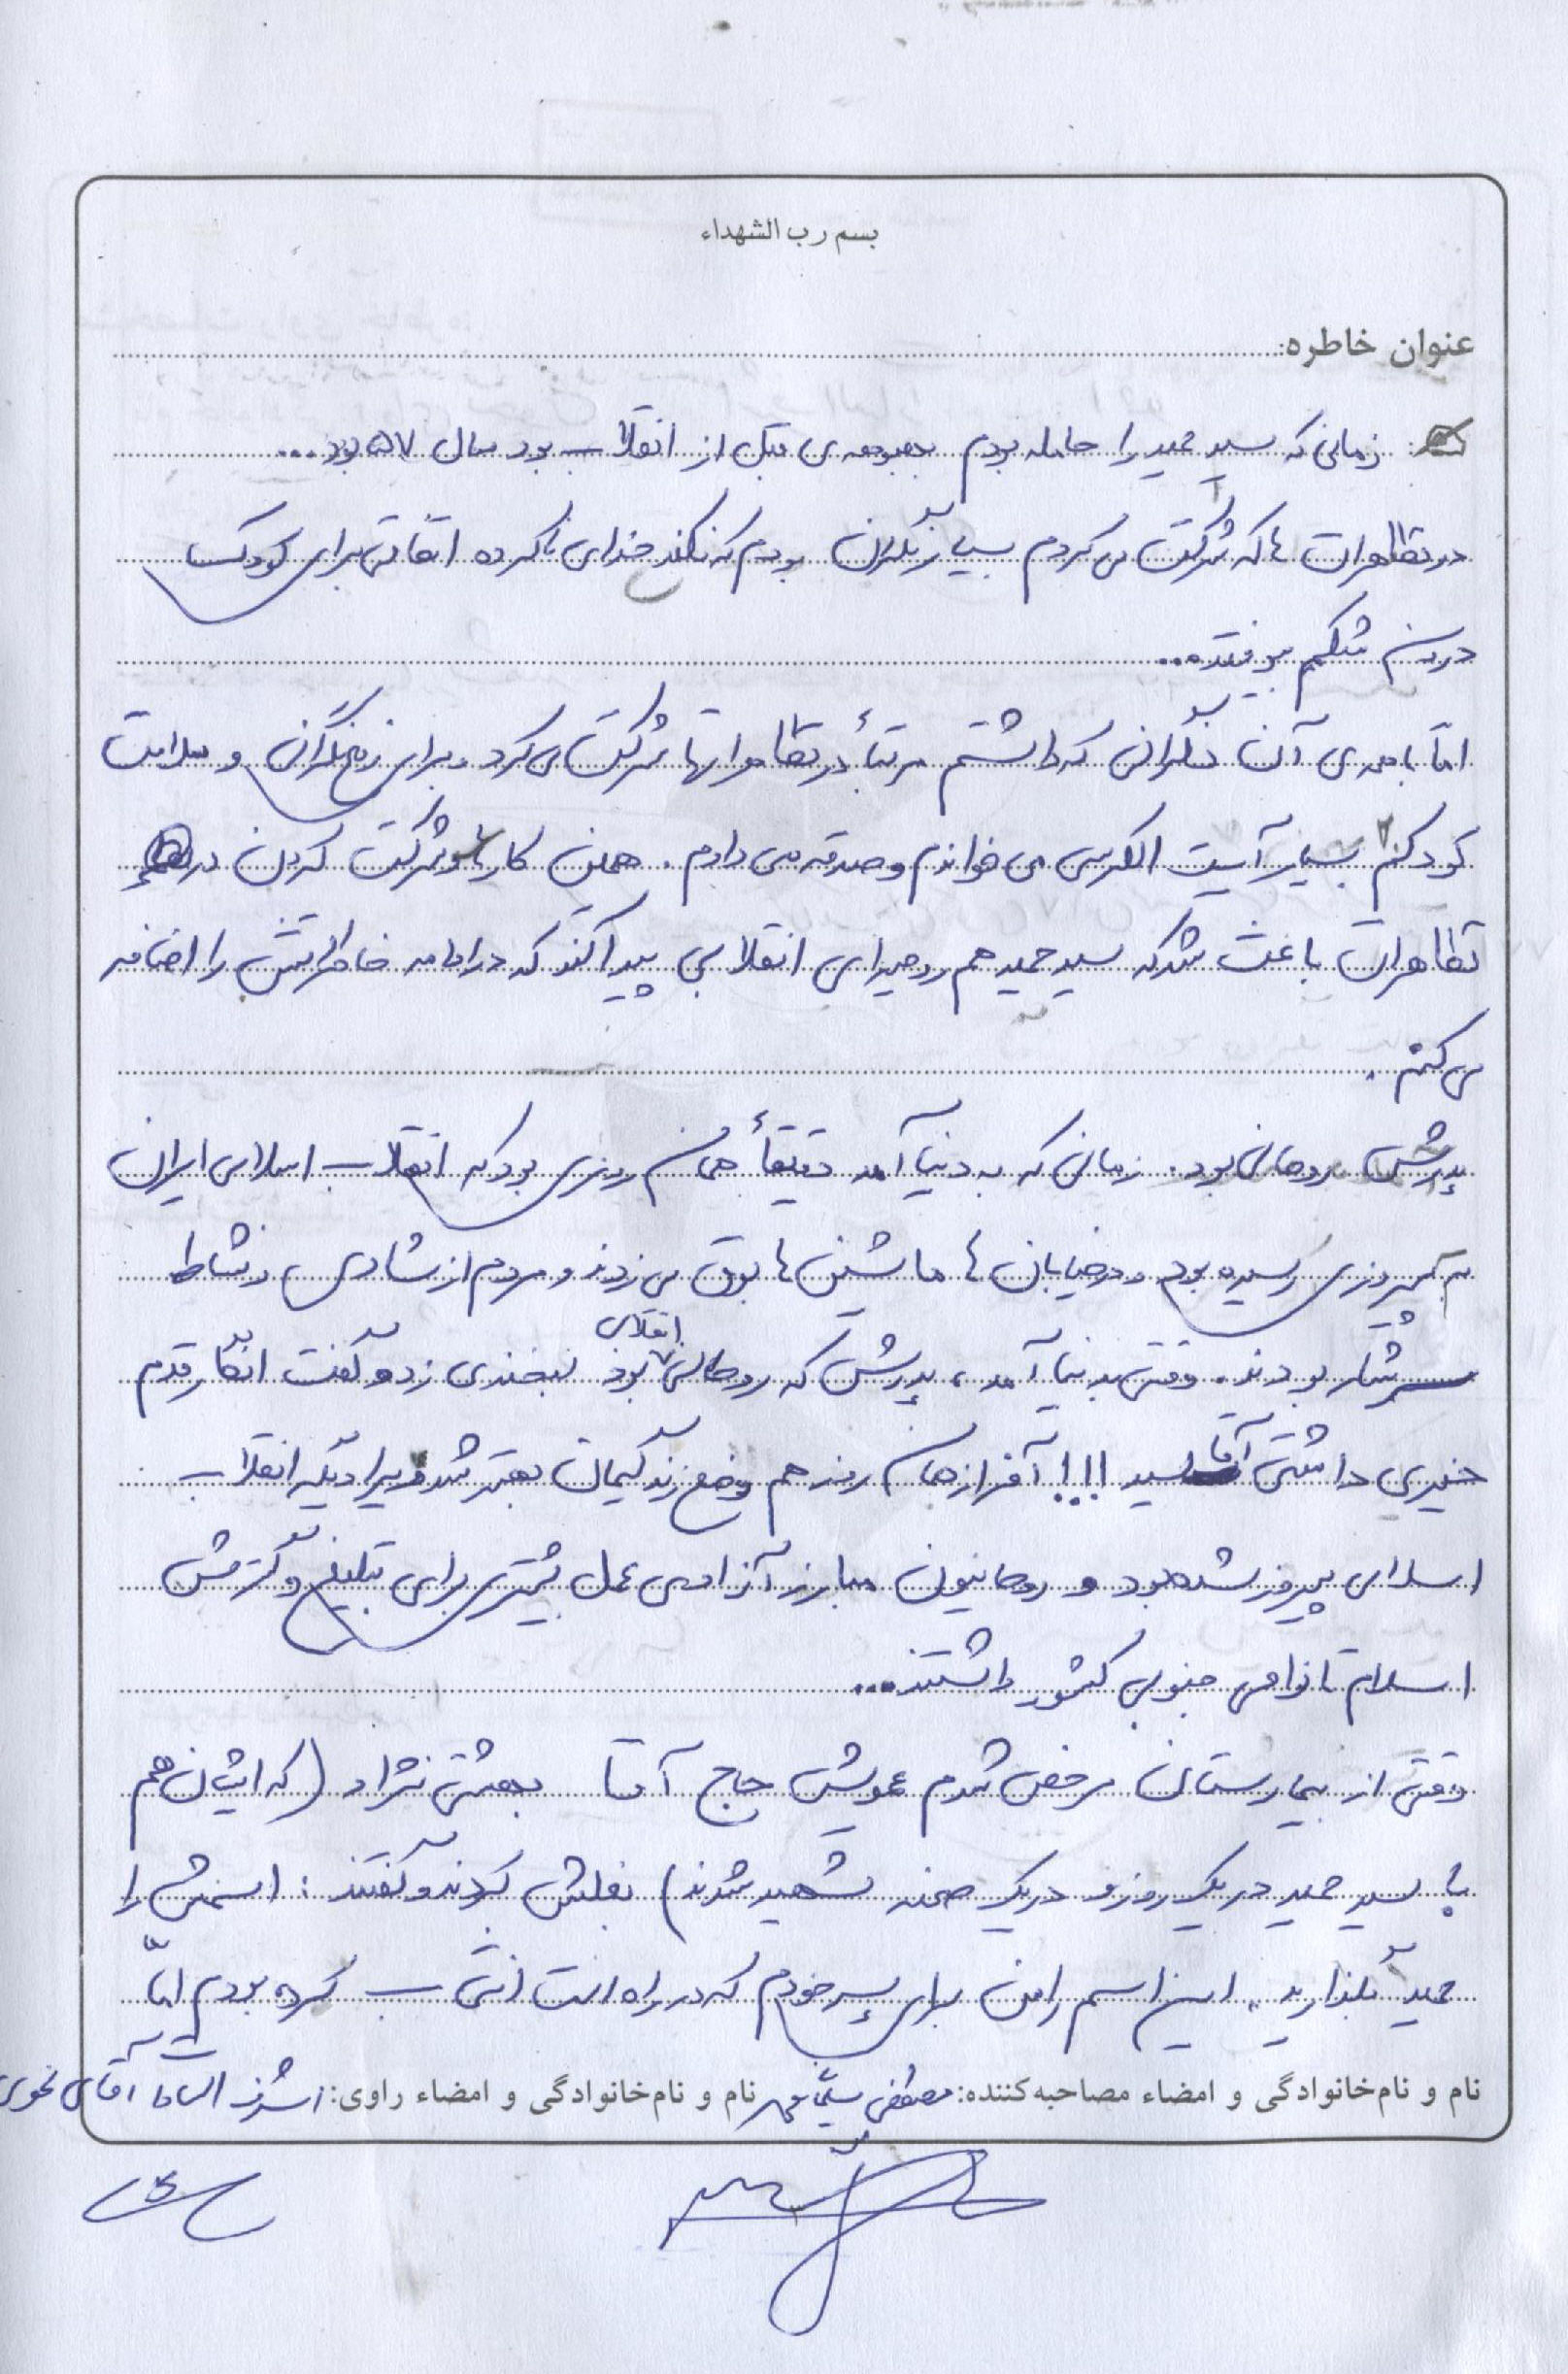 بسم رب الشهداء
عنوان خاطره:
زمانی که سید حمید را حامله بودم بحبوحه‌ی قبل از انقلاب بود سال ۵۷ بود...
در تظاهرات ها که شرکت می کردم بسیار نگران بودم که نکند خدای ناکرده اتفاقی برای کودک
درون شکمم بیوفتد...
اما با همه‌ی آن نگرانی که داشتم مرتباً در تظاهراتها شرکت می کرد و برای رفع نگرانی و سلامت
کودکم بسیار آیت الکرسی می خواندم و صدقه می دادم. همین کارها و شرکت کردن در
تظاهرات باعث شد که سید حمید هم روحیه‌ای انقلابی پیدا کند که در ادامه خاطراتش را اضافه
می کنم.
پدرش روحانی بود. زمانی که به دنیا آمد دقیقاً همان روزی بود که انقلاب اسلامی ایران
به پیروزی رسیده بود و در خیابان ها ماشین ها بوق می زدند و مردم از شادی و نشاط
سرشار بودند. وقتی بدنیا آمد، پدرش که روحانی انقلابی بود لبخندی زد و گفت انگار قدم
خیری داشتی آقا سید !!! آخر از همان روز هم وضع زندگیمان بهتر شد زیرا دیگه انقلاب
اسلامی پیروز شده بود و روحانیون مبارز آزادی عمل بیشتری برای تبلیغ و گسترش
اسلام تا نواحی جنوبی کشور داشتند...
وقتی از بیمارستان مرخص شدم عمویش حاج آقا بهشتی نژاد (که ایشان هم
با سید حمید در یک روز و در یک صحنه شهید شدند) بغلش کردند و گفتند: اسمش را
حمید بگذارید. این اسم را من برای پسر خودم که در راه است انتخاب کرده بودم اما
نام و نام‌خانوادگی و امضاء مصاحبه‌کننده: مصطفی نام و نام‌خانوادگی و امضاء راوی: اشرف السادات آقای نحوی